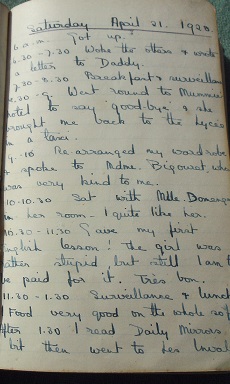 Saturday April 21. 1928
6 a.m. Got up.
6.30 - 7.30 Wore the stars & wrote
a letter to Daddy.
7.30 - 8.30 Breakfast & surveillance
8.30 - 9. Went round to Mummie's
hotel to say good-bye & she
brought me back to the Lycée
in a taxi.
9. - 10 Re-arranged my wardrobe
& spoke to Mdme. Bigouret who
was very kind to me.
10 - 10.30 Sat with Mlle.
in her room - I quite like her.
10.30 - 11.30 Gave my first
English lesson! The girl was
rather stupid, but still I am to
be paid for it. Très bon.
11.30 - 1.30 Surveillance & lunch
Food very good on the whole so far
After 1.30 I read Daily Mirrors
bit then went to Les